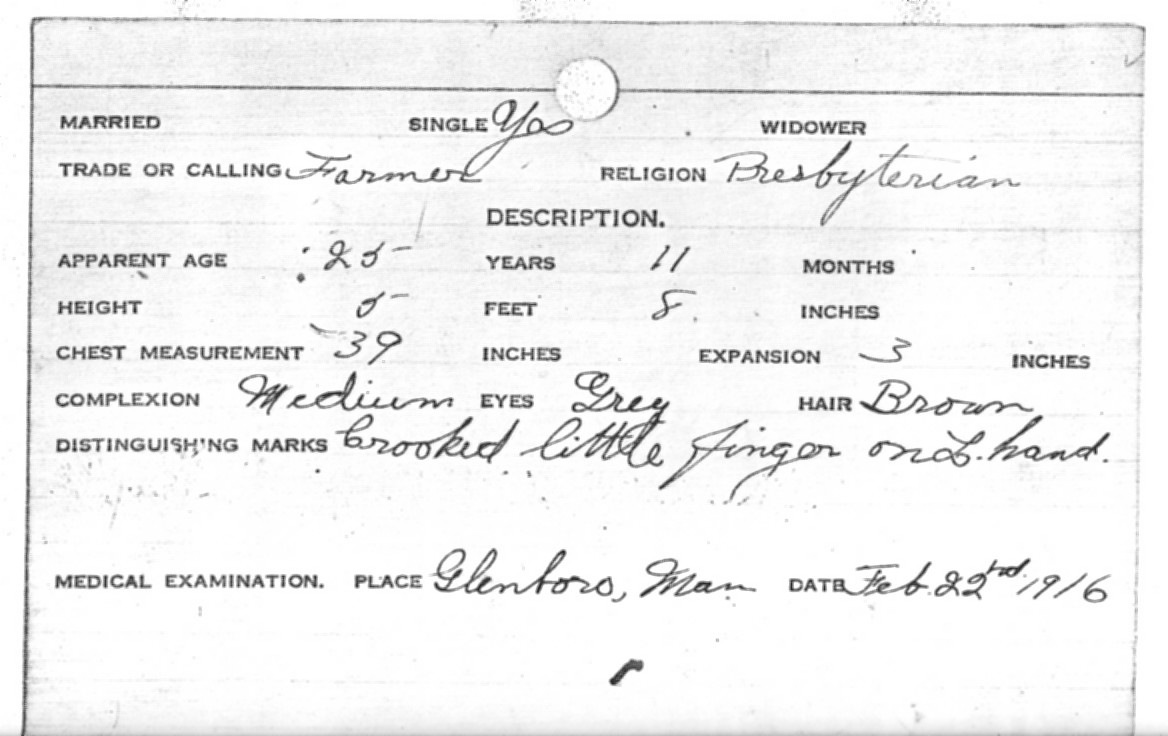 MARRIED SINGLE Yes WIDOWER
TRADE OR CALLING Farmer RELIGION Presbyterian
DESCRIPTION.
APPARENT AGE 25 YEARS 11 MONTHS
HEIGHT 5 FEET 8 INCHES
CHEST MEASUREMENT 39 INCHES EXPANSION 3 INCHES
COMPLEXION Medium EYES Grey HAIR Brown
DISTINGUISHING MARKS Crooked little finger on L. hand.
MEDICAL EXAMINATION. PLACE Glenboro, Man DATE Feb. 22nd 1916